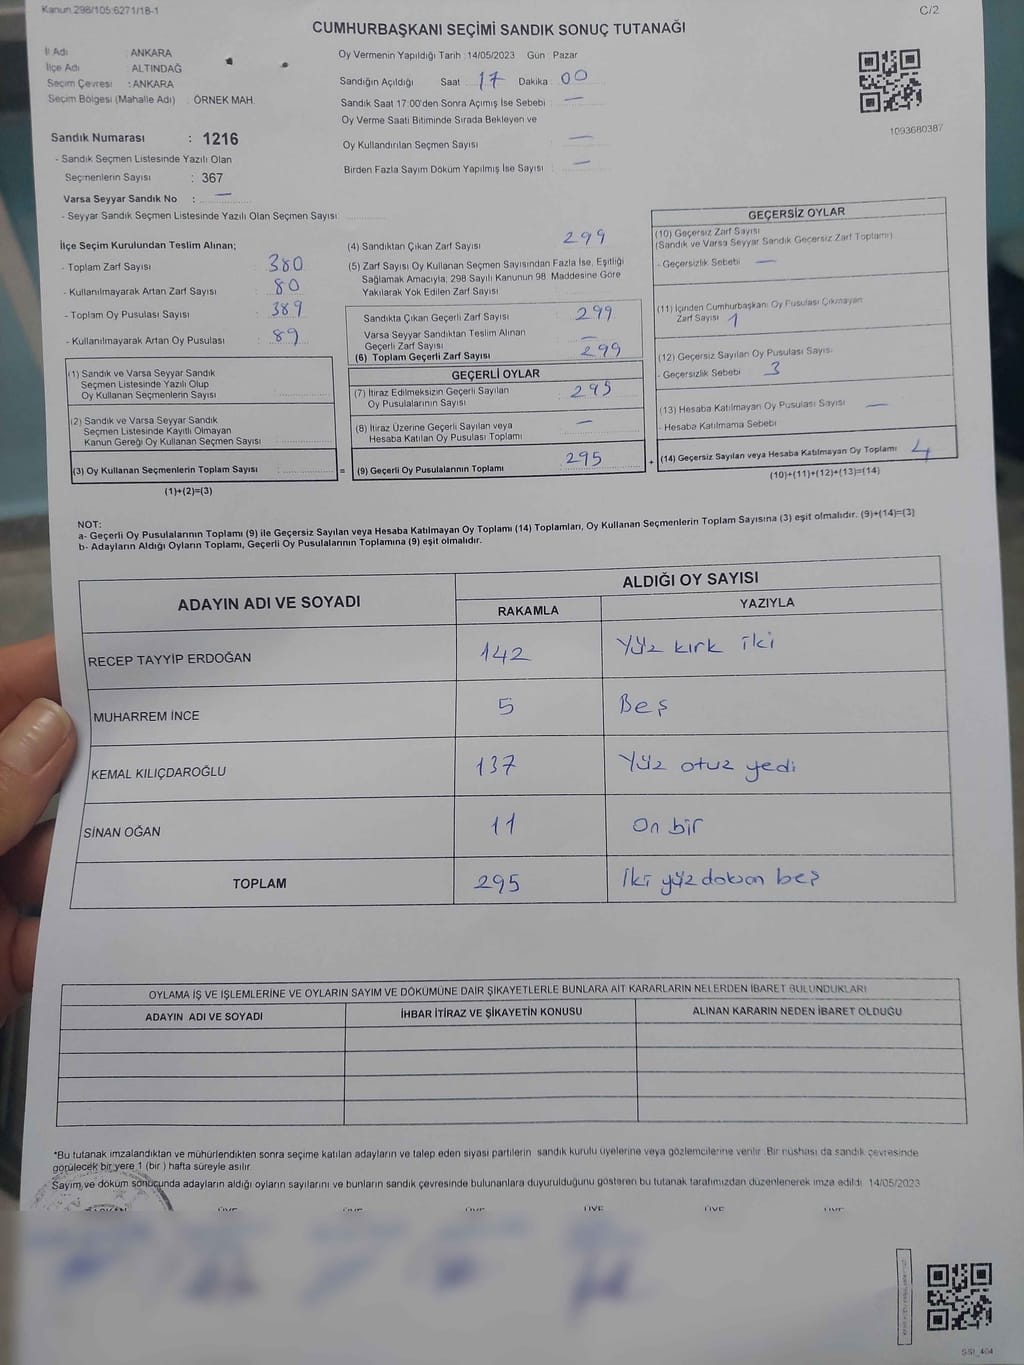 Kanun 298/105:6271/18-1
C/2
CUMHURBAŞKANI SEÇİMİ SANDIK SONUÇ TUTANAĞI
İl Adı : ANKARA
İlçe Adı : ALTINDAĞ
Seçim Çevresi : ANKARA
Seçim Bölgesi (Mahalle Adı) : ÖRNEK MAH.
Sandık Numarası : 1216
- Sandık Seçmen Listesinde Yazılı Olan
Seçmenlerin Sayısı : 367
Varsa Seyyar Sandık No : —
- Seyyar Sandık Seçmen Listesinde Yazılı Olan Seçmen Sayısı
Oy Vermenin Yapıldığı Tarih : 14/05/2023 Gün : Pazar
Sandığın Açıldığı Saat 17 Dakika 00
Sandık Saat 17:00'den Sonra Açımış İse Sebebi : —
Oy Verme Saati Bitiminde Sırada Bekleyen ve
Oy Kullandırılan Seçmen Sayısı : —
Birden Fazla Sayım Döküm Yapılmış İse Sayısı : —
1093680387
İlçe Seçim Kurulundan Teslim Alınan;
- Toplam Zarf Sayısı : 380
- Kullanılmayarak Artan Zarf Sayısı : 80
- Toplam Oy Pusulası Sayısı : 389
- Kullanılmayarak Artan Oy Pusulası : 89
(1) Sandık ve Varsa Seyyar Sandık
Seçmen Listesinde Yazılı Olup
Oy Kullanan Seçmenlerin Sayısı :
(2) Sandık ve Varsa Seyyar Sandık
Seçmen Listesinde Kayıtlı Olmayan
Kanun Gereği Oy Kullanan Seçmen Sayısı :
(3) Oy Kullanan Seçmenlerin Toplam Sayısı :
(1)+(2)=(3)
(4) Sandıktan Çıkan Zarf Sayısı : 299
(5) Zarf Sayısı Oy Kullanan Seçmen Sayısından Fazla İse, Eşitliği
Sağlamak Amacıyla; 298 Sayılı Kanunun 98. Maddesine Göre
Yakılarak Yok Edilen Zarf Sayısı :
Sandıkta Çıkan Geçerli Zarf Sayısı : 299
Varsa Seyyar Sandıktan Teslim Alınan
Geçerli Zarf Sayısı : —
(6) Toplam Geçerli Zarf Sayısı : 299
GEÇERLİ OYLAR
(7) İtiraz Edilmeksizin Geçerli Sayılan
Oy Pusulalarının Sayısı : 295
(8) İtiraz Üzerine Geçerli Sayılan veya
Hesaba Katılan Oy Pusulası Toplamı : —
= (9) Geçerli Oy Pusulalarının Toplamı : 295
GEÇERSİZ OYLAR
(10) Geçersiz Zarf Sayısı
(Sandık ve Varsa Seyyar Sandık Geçersiz Zarf Toplamı)
- Geçersizlik Sebebi : —
(11) İçinden Cumhurbaşkanı Oy Pusulası Çıkmayan
Zarf Sayısı : 1
(12) Geçersiz Sayılan Oy Pusulası Sayısı
- Geçersizlik Sebebi : 3
(13) Hesaba Katılmayan Oy Pusulası Sayısı : —
- Hesaba Katılmama Sebebi
+ (14) Geçersiz Sayılan veya Hesaba Katılmayan Oy Toplamı : 4
(10)+(11)+(12)+(13)=(14)
NOT:
a- Geçerli Oy Pusulalarının Toplamı (9) ile Geçersiz Sayılan veya Hesaba Katılmayan Oy Toplamı (14) Toplamları, Oy Kullanan Seçmenlerin Toplam Sayısına (3) eşit olmalıdır. (9)+(14)=(3)
b- Adayların Aldığı Oyların Toplamı, Geçerli Oy Pusulalarının Toplamına (9) eşit olmalıdır.
ADAYIN ADI VE SOYADI ALDIĞI OY SAYISI
RAKAMLA YAZIYLA
RECEP TAYYİP ERDOĞAN 142 Yüz kırk iki
MUHARREM İNCE 5 Beş
KEMAL KILIÇDAROĞLU 137 Yüz otuz yedi
SİNAN OĞAN 11 On bir
TOPLAM 295 İki yüz doksan beş
OYLAMA İŞ VE İŞLEMLERİNE VE OYLARIN SAYIM VE DÖKÜMÜNE DAİR ŞİKAYETLERLE BUNLARA AİT KARARLARIN NELERDEN İBARET BULUNDUKLARI
ADAYIN ADI VE SOYADI İHBAR İTİRAZ VE ŞİKAYETİN KONUSU ALINAN KARARIN NEDEN İBARET OLDUĞU
*Bu tutanak imzalandıktan ve mühürlendikten sonra seçime katılan adayların ve talep eden siyasi partilerin sandık kurulu üyelerine veya gözlemcilerine verilir. Bir nüshası da sandık çevresinde
görülecek bir yere 1 (bir ) hafta süreyle asılır.
Sayım ve döküm sonucunda adayların aldığı oyların sayılarını ve bunların sandık çevresinde bulunanlara duyurulduğunu gösteren bu tutanak tarafımızdan düzenlenerek imza edildi. 14/05/2023
ÜYE ÜYE ÜYE ÜYE ÜYE ÜYE